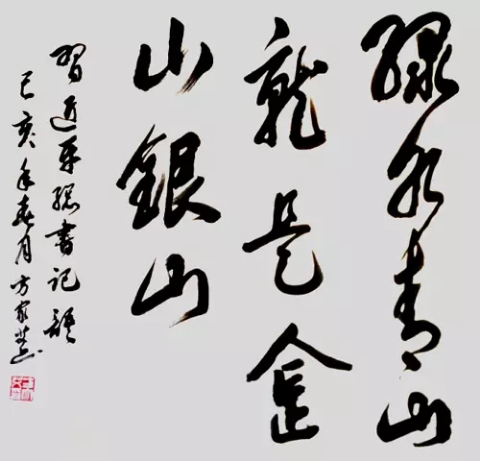 绿水青山
就是金
山銀山
習近平總書记語
己亥年春月方家